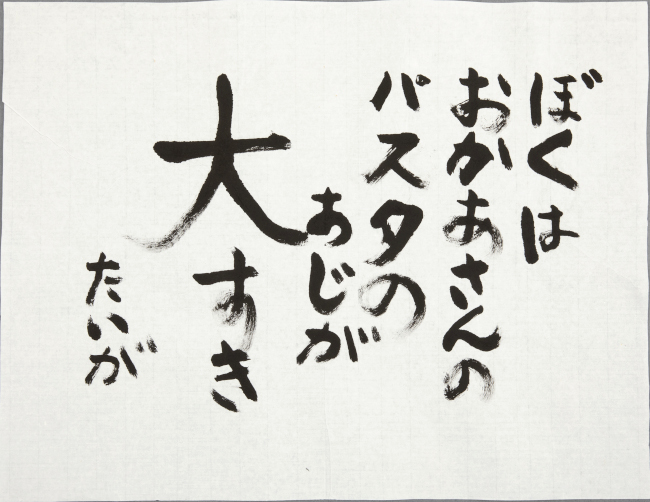 ぼくは
おかあさんの
パスタの
あじが
大すき
たいが